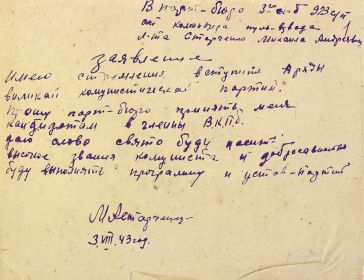 В парт-бюро 3го с-б 973 с/п
от командира пуль-взвода
л-та Старченко Михаила Андреевич
Заявление
Имею стремления вступить в ряды
великай комунистическай партий.
Прошу парт-бюро принять меня
кандидатам в члены В.К.П.б.
даю слово свято буду носит
высокое звания комуниста и добросавесно
буду выполнять программу и устав-партий
МАСтарченко
3.VIII.43 год.